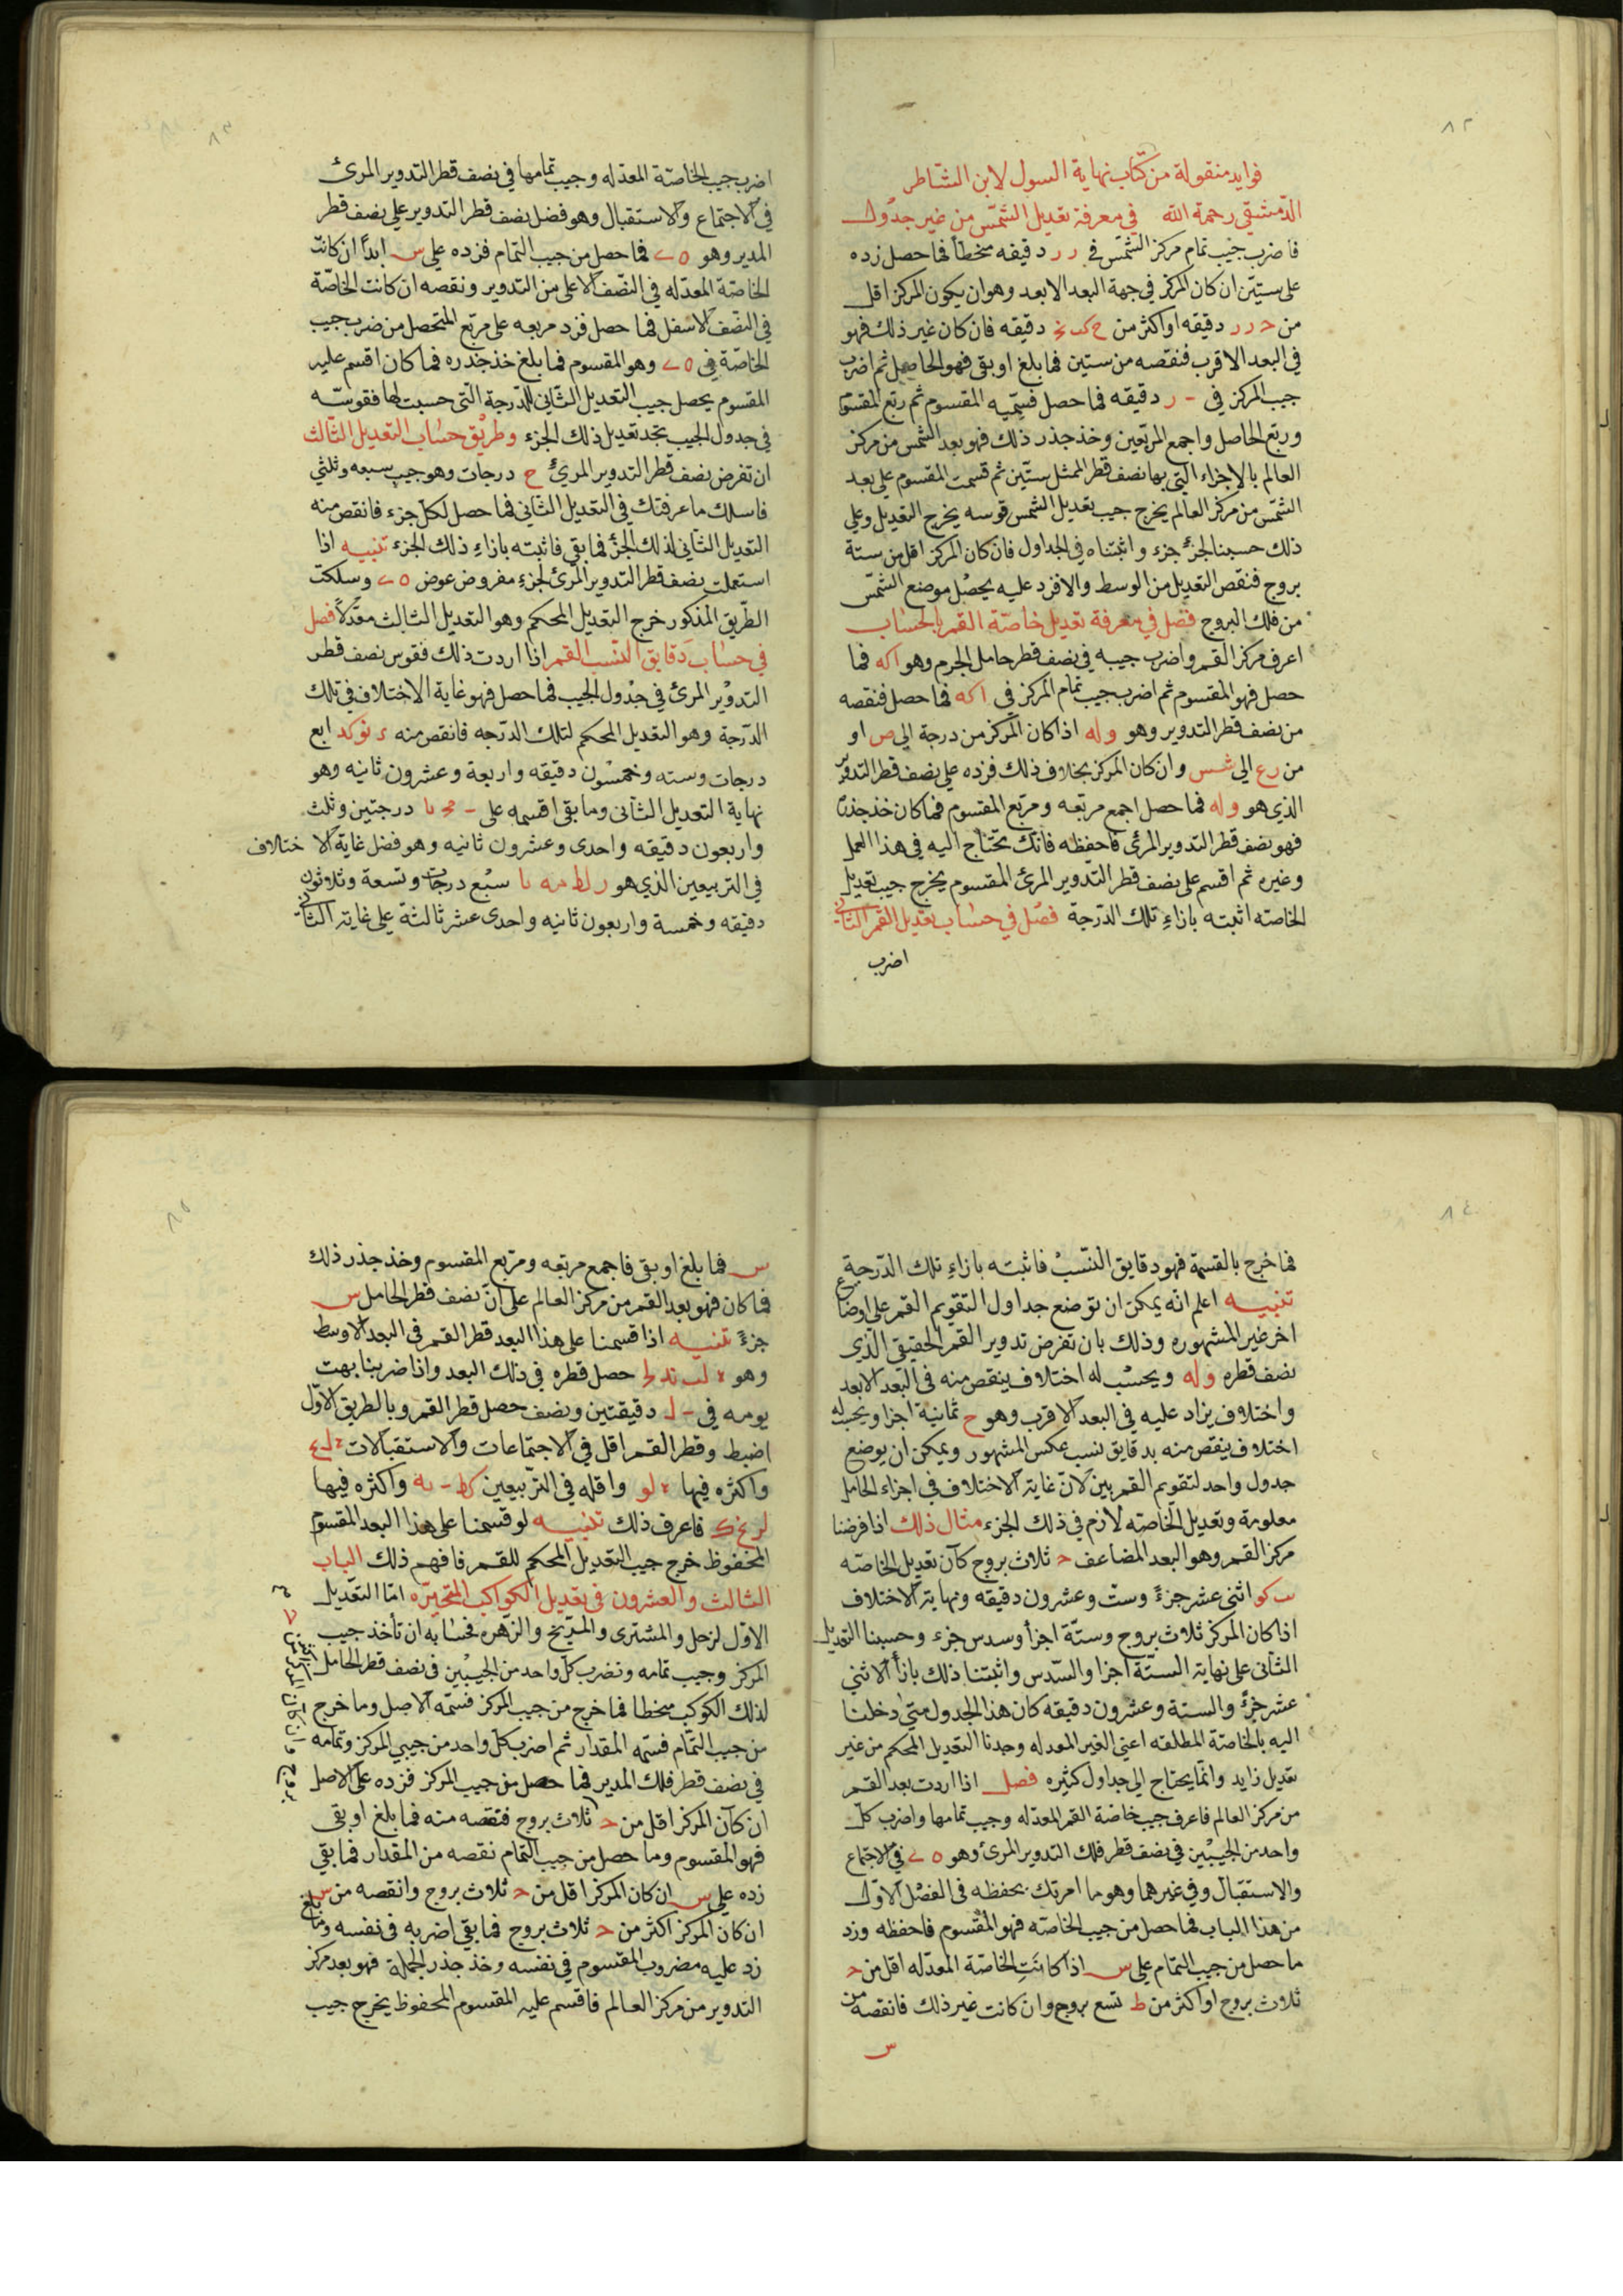 ٨٢
فوايد منقولة من كتاب نهاية السول لابن الشاطر
الدمشقي رحمة الله في معرفة تعديل الشمس من غير جدول
فاضرب جيب تمام مركز الشمس في ر ر دقيقه منحطا فما حصل زده
على ستين ان كان المركز في جهة البعد الابعد وهو ان يكون المركز اقل
من ح ر ر دقيقه او اكثر من دقيقه فان كان غير ذلك فهو
في البعد الاقرب فنقصه من ستين فما بلغ او بقى فهو الحاصل ثم اضرب
جيب المركز في ر دقيقه فما حصل فسميه المقسوم ثم ربع المقسوم
وربع الحاصل واجمع المربعين وخذ جذر ذلك فهو بعد الشمس من مركز
العالم بالاجزاء التي بها نصف قطر الممثل ستين ثم قسمت المقسوم على بعد
الشمس من مركز العالم يخرج جيب تعديل الشمس قوسه يخرج التعديل وعلى
ذلك حسبنا الجزء جزء واثبتناه في الجداول فان كان المركز اقل من ستة
بروج فنقص التعديل من الوسط والا فزد عليه يحصل موضع الشمس
من فلك البروج فصل في معرفة تعديل خاصة القمر بالحساب
اعرف مركز القمر واضرب جيبه في نصف قطر حامل الجرم وهو اكه فما
حصل فهو المقسوم ثم اضرب جيب تمام المركز في اكه فما حصل فنقصه
من نصف قطر التدوير وهو وله اذا كان المركز من درجة الى ص او
من رع الى شس وان كان المركز بخلاف ذلك فزده على نصف قطر التدوير
الذي هو وله فما حصل اجمع مربعه ومربع المقسوم فما كان خذ جذره
فهو نصف قطر التدوير المرئ فاحفظه فانك تحتاج اليه في هذا العمل
وغيره ثم اقسم على نصف قطر التدوير المرئ المقسوم يخرج جيب تعديل
الخاصته اثبته بازاء تلك الدرجة فصل في حساب تعديل القمر الثاني
اضرب
٨٣
اضرب جيب الخاصة المعدله وجيب تمامها في نصف قطر التدوير المرئ
في الاجتماع والاستقبال وهو فضل نصف قطر التدوير على نصف قطر
المدير وهو فما حصل من جيب التمام فزده على س ابدا ان كانت
الخاصة المعدله في النصف الاعلى من التدوير ونقصه ان كانت الخاصة
في النصف الاسفل فما حصل فزد مربعه على مربع المتحصل من ضرب جيب
الخاصة في وهو المقسوم فما بلغ خذ جذره فما كان اقسم عليه
المقسوم يحصل جيب التعديل الثاني للدرجة التي حسبت لها فقوسه
في جدول الجيب تجد تعديل ذلك الجزء وطريق حساب التعديل الثالث
ان تفرض نصف قطر التدوير المرئ ح درجات وهو جيب سبعه وثلثي
فاسلك ما عرفتك في التعديل الثاني فما حصل لكل جزء فانقص منه
التعديل الثاني لذلك الجزء فما بقى فاثبته بازاء ذلك الجزء تنبيه اذا
استعملت نصف قطر التدوير المرئ لجزء مفروض عوض وسلكت
الطريق المذكور خرج التعديل المحكم وهو التعديل الثالث معدلا فصل
في حساب دقايق النسب القمر اذا اردت ذلك فقوس نصف قطر
التدوير المرئ في جدول الجيب فما حصل فهو غاية الاختلاف في تلك
الدرجة وهو التعديل المحكم لتلك الدرجه فانقص منه د نو كد اربع
درجات وسته وخمسون دقيقه واربعة وعشرون ثانيه وهو
نهاية التعديل الثاني وما بقى اقسمه على درجتين وثلث
واربعون دقيقه واحدى وعشرون ثانيه وهو فضل غاية الاختلاف
في التربيعين الذي هو ر لط مه يا سبع درجات وتسعة وثلاثون
دقيقه وخمسة واربعون ثانيه واحدى عشر ثالثة على غاية الثاني
٨٤
فما خرج بالقسمة فهو دقايق النسب فاثبته بازاء تلك الدرجة
تنبيه اعلم انه يمكن ان توضع جداول التقويم القمر على اوضاع
اخر غير المشهوره وذلك بان تفرض تدوير القمر الحقيقي الذي
نصف قطره وله ويحسب له اختلاف ينقص منه في البعد الابعد
واختلاف يزاد عليه في البعد الاقرب وهو ح ثمانية اجزا ويحسب له
اختلاف ينقص منه بدقايق نسب عكس المشهور ويمكن ان يوضع
جدول واحد لتقويم القمر بين لان غاية الاختلاف في اجزاء الحامل
معلومة وتعديل الخاصته لازم في ذلك الجزء مثال ذلك اذا فرضنا
مركز القمر وهو البعد المضاعف ح ثلاث بروج كان تعديل الخاصته
يب كو اثنى عشر جزءً وست وعشرون دقيقه ونهاية الاختلاف
اذا كان المركز ثلاث بروج وستة اجزأ وسدس جزء وحسبنا التعديل
الثاني على نهاية الستة اجزا والسدس واثبتنا ذلك بازأ الاثني
عشر جزءً والستة وعشرون دقيقه كان هذا الجدول متى دخلنا
اليه بالخاصة المطلقه اعني الغير المعدله وجدنا التعديل المحكم من غير
تعديل زايد وانما يحتاج الى جداول كثيره فصل اذا اردت بعد القمر
من مركز العالم فاعرف جيب خاصة القمر المعدله وجيب تمامها واضرب كل
واحد من الجيبين في نصف قطر فلك التدوير المرئ وهو في الاجتماع
والاستقبال وفي غيرهما وهو ما امرتك بحفظه في الفصل الاول
من هذا الباب فما حصل من جيب الخاصته فهو المقسوم فاحفظه وزد
ما حصل من جيب التمام على س اذا كانت الخاصة المعدله اقل من ح
ثلاث بروج او اكثر من ط تسع بروج وان كانت غير ذلك فانقصه من
س
٨٥
س فما بلغ او بقى فاجمع مربعه ومربع المقسوم وخذ جذر ذلك
فما كان فهو بعد القمر من مركز العالم على ان نصف قطر الحامل س
جزءً تنبيه اذا قسمنا على هذا البعد قطر القمر في البعد الاوسط
وهو حصل قطره في ذلك البعد واذا ضربنا بهت
يومه في دقيقتين ونصف حصل قطر القمر وبالطريق الاول
اضبط وقطر القمر اقل في الاجتماعات والاستقبالات
واكثره فيها لو واقله في التربيعين كط واكثره فيها
فاعرف ذلك تنبيه لو قسمنا على هذا البعد المقسوم
المحفوظ خرج جيب التعديل المحكم للقمر فافهم ذلك الباب
الثالث والعشرون في تعديل الكواكب المتحيره اما التعديل
الاول لزحل والمشترى والمريخ والزهره فحسابه ان تأخذ جيب
المركز وجيب تمامه وتضرب كل واحد من الجيبين في نصف قطر الحامل
لذلك الكوكب منحطا فما خرج من جيب المركز فسمه الاصل وما خرج
من جيب التمام فسمه المقدار ثم اضرب كل واحد من جيبي المركز وتمامه
في نصف قطر فلك المدير فما حصل من جيب المركز فزده على الاصل
ان كان المركز اقل من ح ثلاث بروج فتقصه منه فما بلغ او بقى
فهو المقسوم وما حصل من جيب التمام نقصه من المقدار فما بقي
زده على س ان كان المركز اقل من ح ثلاث بروج وانقصه من س
ان كان المركز اكثر من ح ثلاث بروج فما بقي اضربه في نفسه وما بلغ
زد عليه مضروب المقسوم في نفسه وخذ جذر الجملة فهو بعد مركز
التدوير من مركز العالم فاقسم عليه المقسوم المحفوظ يخرج جيب
وان كان المركز
بروج